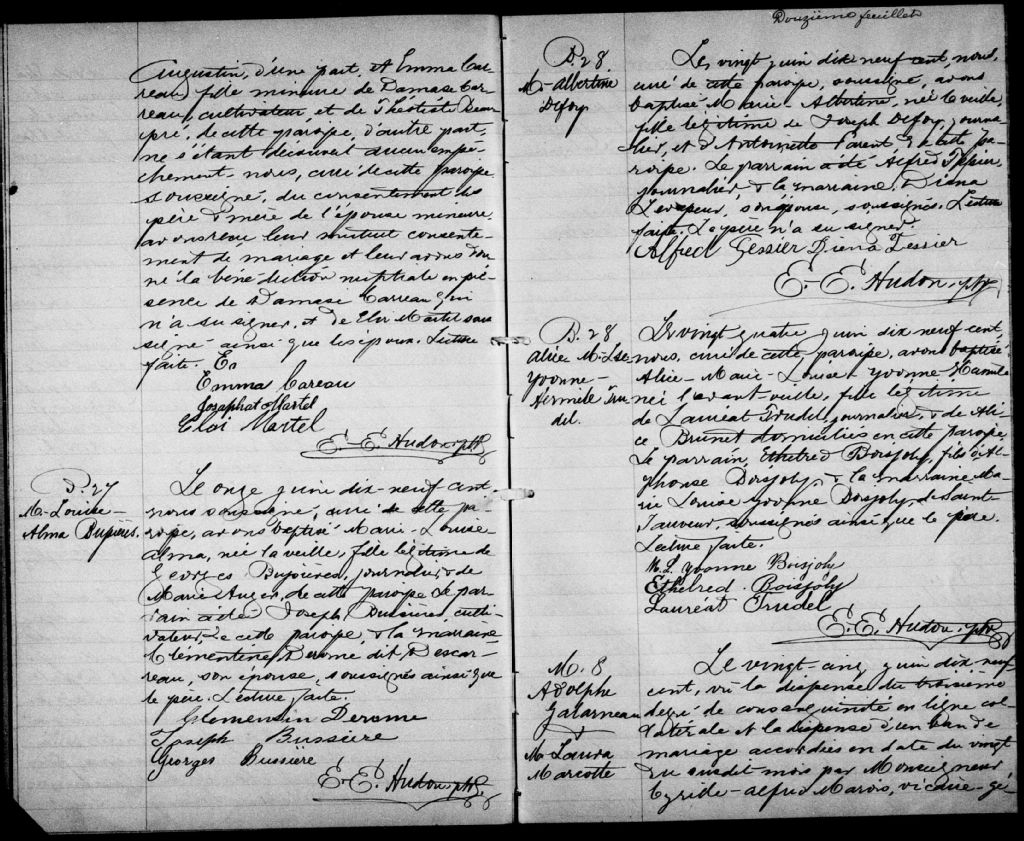 Augustin, d'une part, et Emma Car-
reau, fille mineure de Damase Car-
reau, cultivateur, et de
de cette paroisse, d'autre part,
ne s'étant découvert aucun empê-
chement, nous, curé de cette paroisse
soussigné, du consentement des
père & mère de l'épouse mineure,
avons reçu leur mutuel consente-
ment de mariage et leur avons don
né la bénédiction nuptiale en pré-
sence de Damase Carreau qui
n'a su signer, et de Eloi Martel sous
signé ainsi que les époux. Lecture
faite.
Emma Careau
Josaphat Martel
Eloi Martel
E.-E. Hudon, ptre
B. 27
M.-Louise-
Alma Bussières.
Le onze juin dix-neuf cent
nous soussigné, curé de cette pa-
roisse, avons baptisé Marie-Louise
Alma, née la veille, fille légitime de
Georges Bussières, journalier, & de
Marie Auger, de cette paroisse. Le par-
rain a été Joseph Bussières, culti-
vateur, de cette paroisse, & la marraine
Clémentine Derome dit Descar-
reau, son épouse, soussignés ainsi que
le père. Lecture faite.
Derome
Joseph Bussiere
Georges Bussière
E.-E. Hudon, ptre
Douzième feuillet
B. 28
M.-Albertine
Defoy
Le vingt juin dix neuf cent, nous,
curé de cette paroisse, soussigné, avons
baptisé Marie-Albertine, née la veille,
fille légitime de Joseph Defoy, journa-
lier, et d'Antoinette Parent, de cette pa-
roisse. Le parrain a été Alfred Tessier,
journalier, & la marraine, Diana
Levasseur, son épouse, soussignés. Lecture
faite. Le père n'a su signer.
Alfred Tessier Diena Tessier
E.-E. Hudon, ptre
B. 28
Alice M.-Lse
Yvonne-
Hermile Tru
del.
Le vingt quatre juin dix neuf cent
nous, curé de cette paroisse, avons baptisé
Alice-Marie-Louise-Yvonne-
née l'avant-veille, fille légitime
de Lauréat Trudel, journalier, & de Ali-
ce Brunet domiciliés en cette paroisse.
Le parrain, Ethelred Boisjoly, fils d'Al-
phonse Boisjoly, & la marraine Ma-
rie Louise Yvonne Boisjoly, de Saint
Sauveur, soussignés ainsi que le père.
Lecture faite.
M. L. Yvonne Boisjoly
Ethelred Boisjoly
Lauréat Trudel
E.-E. Hudon, ptre
M. 8
Adolphe
Galarneau
&
M. Laura
Marcotte
Le vingt-cinq juin dix neuf
cent, vu la dispense du troisième
degré de consanguinité en ligne col-
latérale et la dispense d'un ban de
mariage accordées en date du vingt
du susdit mois par Monseigneur
Cyrille-Alfred Marois, vicaire-gé-